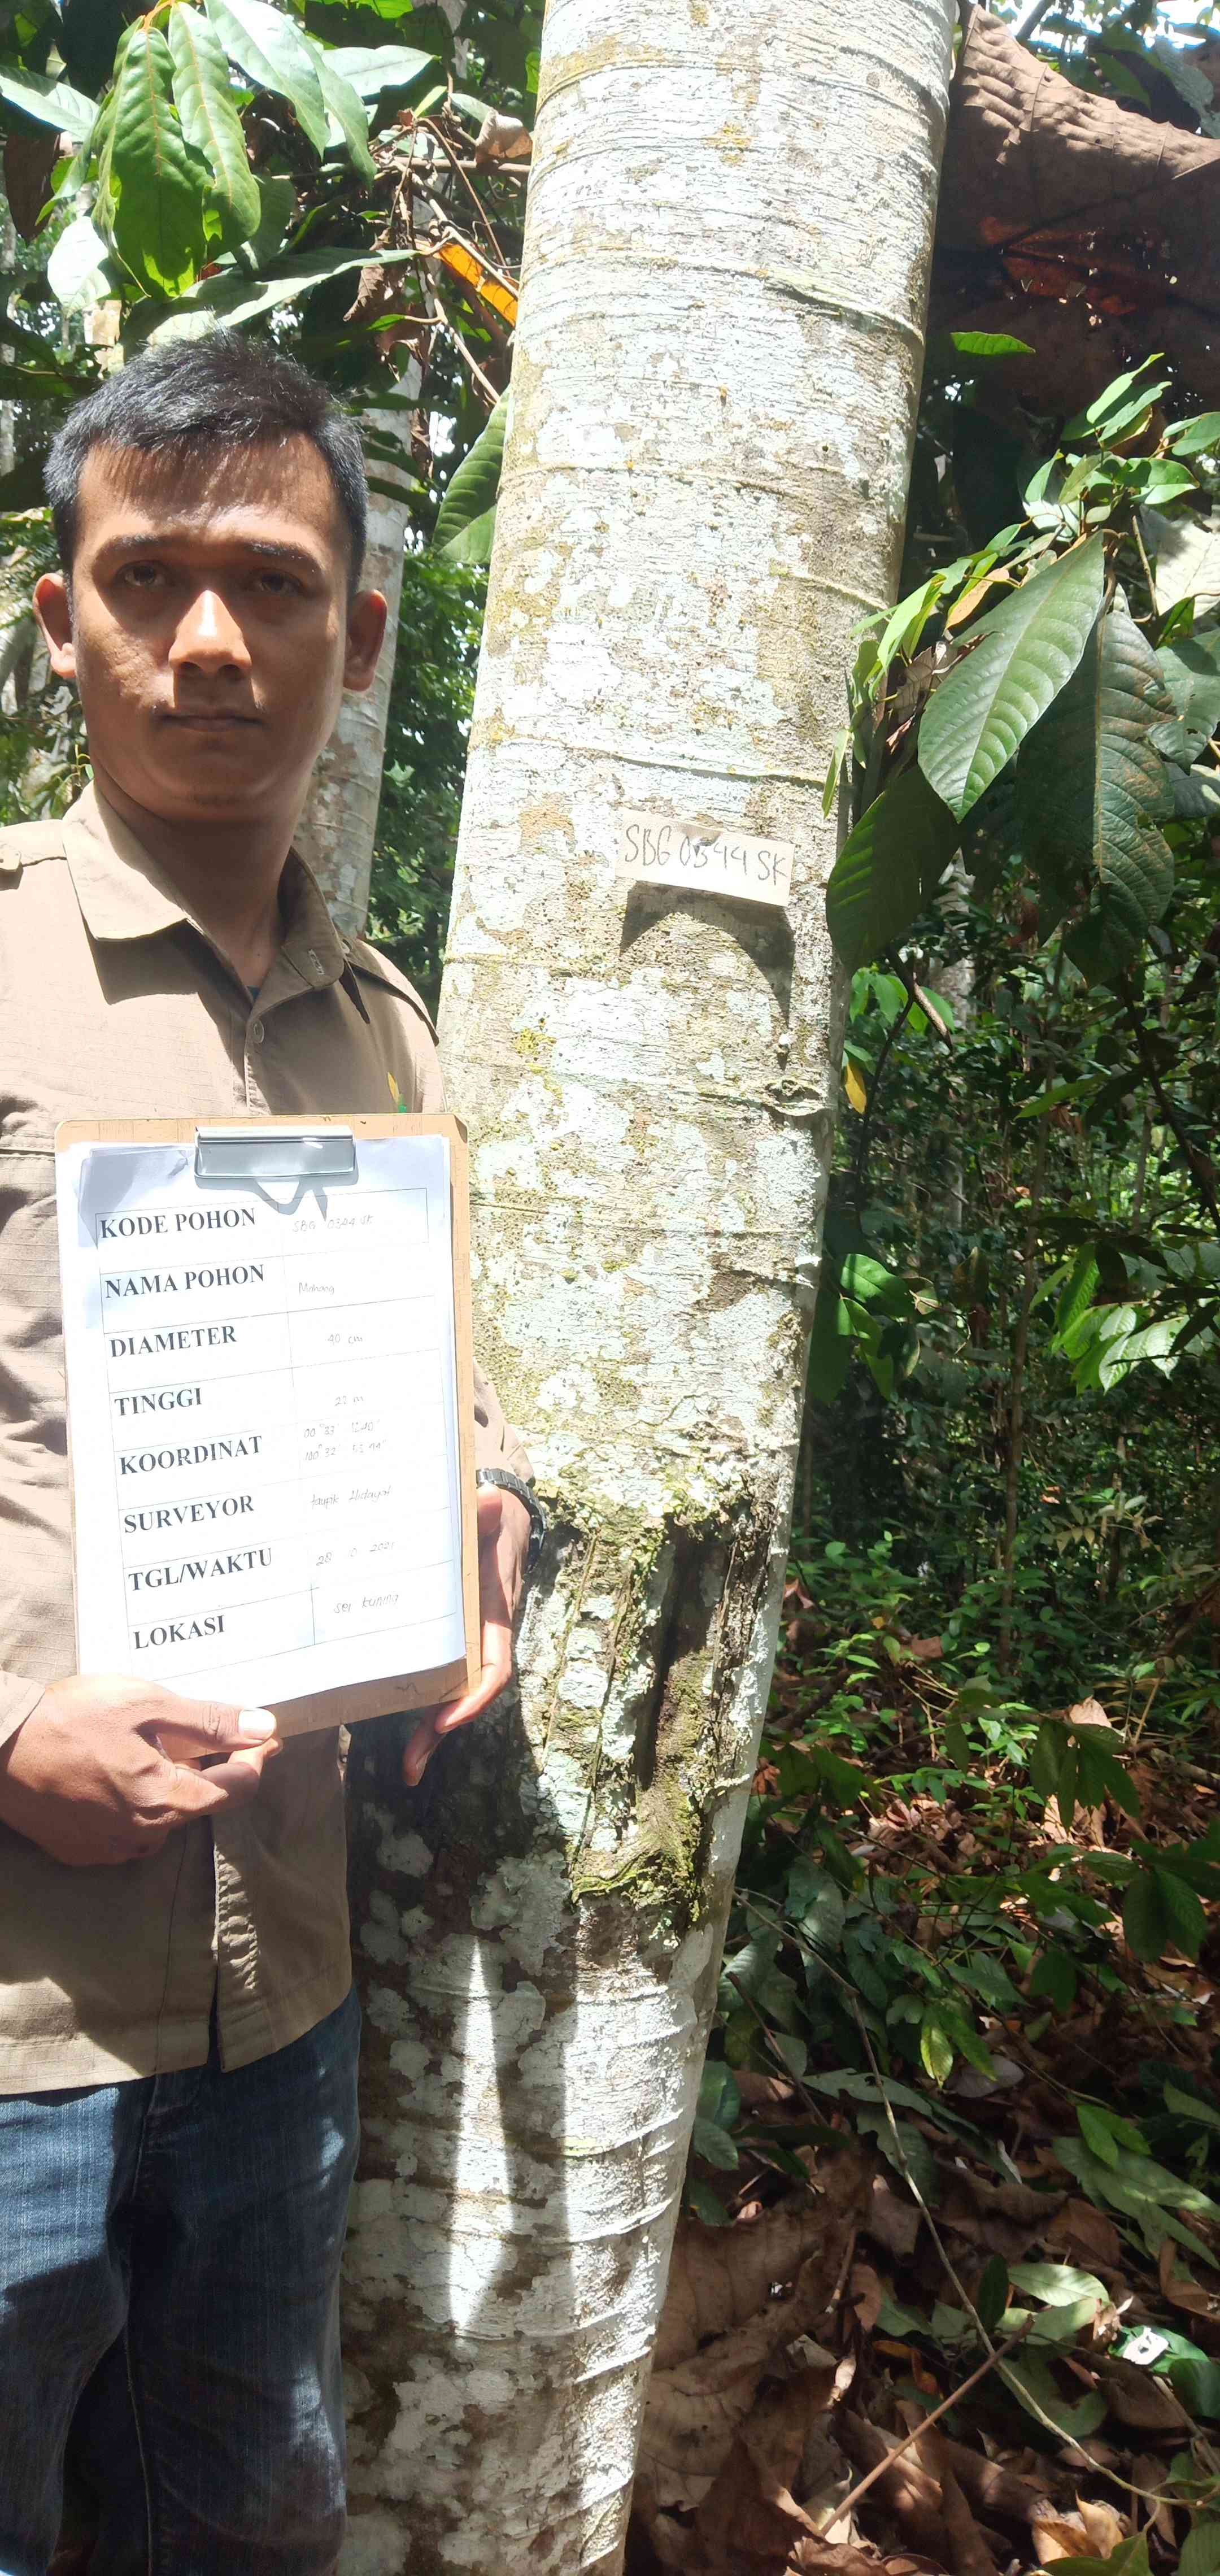 SBG 0344 SK
KODE POHON SBG 0344 SK
NAMA POHON Mahang
DIAMETER 40 cm
TINGGI 22 m
KOORDINAT 00° 33'
100° 32'
SURVEYOR taupik Hidayat
TGL/WAKTU 28 10 2021
LOKASI sei kuning